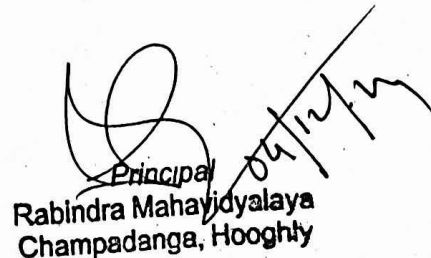 Principal
Rabindra Mahavidyalaya
Champadanga, Hooghly